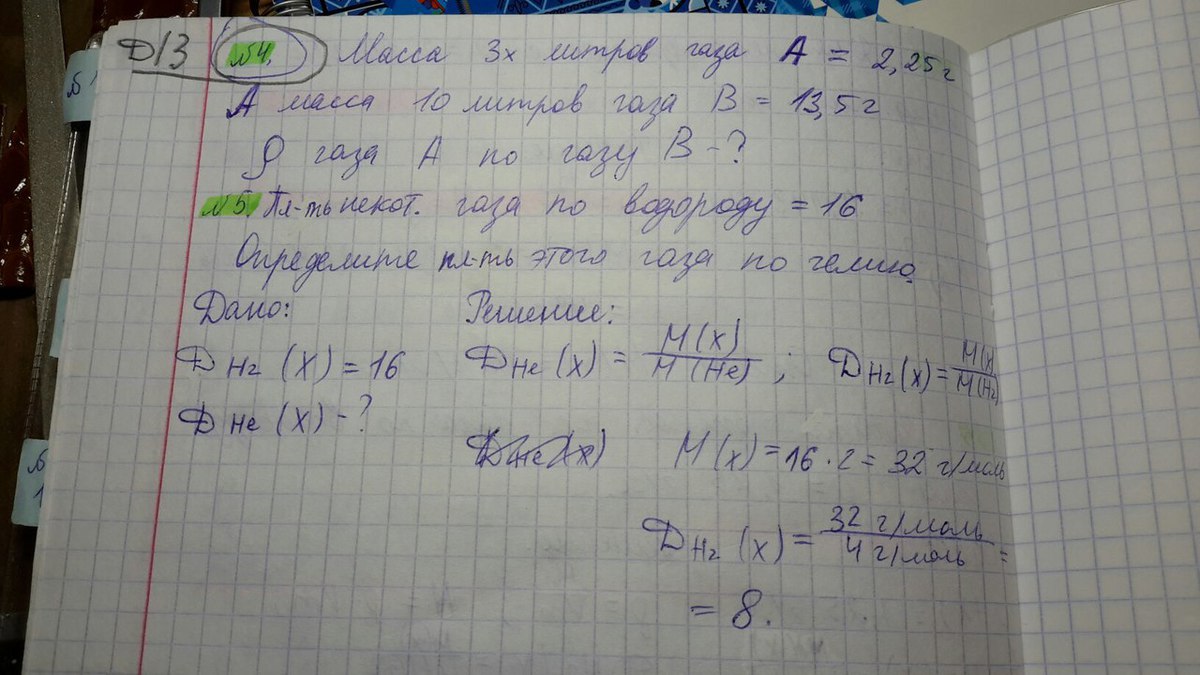 Д/З №4. Масса 3х литров газа А = 2,25 г
А масса 10 литров газа В = 13,5 г
D газа А по газу В - ?
№5. Пл-ть некот. газа по водороду = 16
Определите пл-ть этого газа по гелию.
Дано: Решение:
D H2 (X) = 16 D He (X) = M(X) / M(He) ; D H2 (X) = M(X) / M(H2)
D He (X) - ?
D He (X) M(X) = 16 · 2 = 32 г/моль
D H2 (X) = 32 г/моль / 4 г/моль =
= 8.